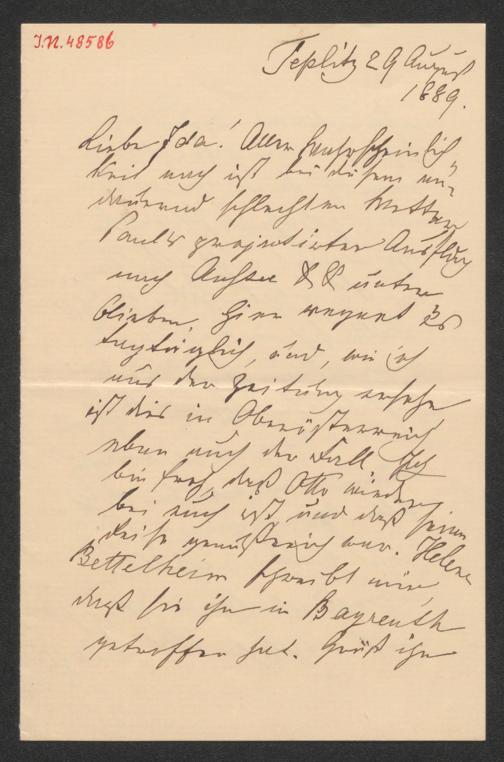 I.N. 48586
Teplitz 29 August
1889.
Liebe Ida! Allen Wahrscheinlich
keit nach ist bei diesem an-
dauernd schlechten Wetter
Paul's projectirter Ausflug
nach Aussee & & unter
blieben. Hier regnet es
tagtäglich, und, wie ich
aus der Zeitung ersehe
ist dies in Oberösterreich
eben auch der Fall. Ich
bin froh, daß Otto wieder
bei euch ist und daß seine
Reise genußreich war. Helene
Bettelheim schreibt mir,
daß sie ihn in Bayreuth
getroffen hat. Grüß ihn